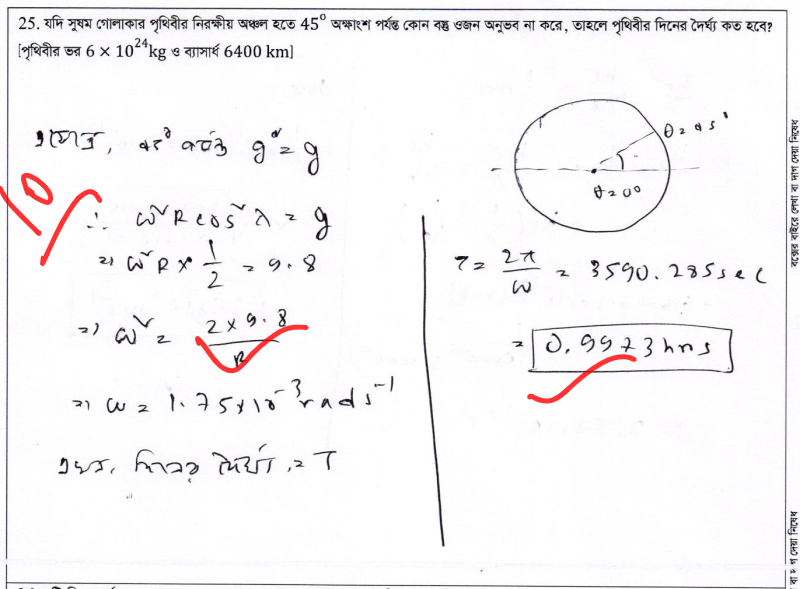 25. যদি সুষম গোলাকার পৃথিবীর নিরক্ষীয় অঞ্চল হতে 45⁰ অক্ষাংশ পর্যন্ত কোন বস্তু ওজন অনুভব না করে, তাহলে পৃথিবীর দিনের দৈর্ঘ্য কত হবে?
[পৃথিবীর ভর 6 × 10²⁴kg ও ব্যাসার্ধ 6400 km]
10
এক্ষেত্রে, 45° পর্যন্ত g" = g
∴ ω²R cos²λ = g
⇒ ω²R × 1/2 = 9.8
⇒ ω² = 2 × 9.8 / R
⇒ ω = 1.75×10⁻³ rad s⁻¹
এখন, দিনের দৈর্ঘ্য, = T
θ = 45°
θ = 0°
T = 2π/ω = 3590.285 sec
= 0.9973 hrs
বক্সের বাইরে লেখা বা দাগ দেয়া নিষেধ